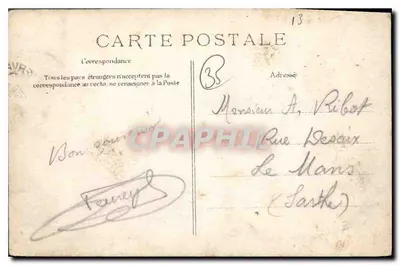 13
CARTE POSTALE
Correspondance
Tous les pays étrangers n'acceptent pas la
correspondance au recto, se renseigner à la Poste
Adresse
35
Monsieur A. Ribot
Rue Desaix
Le Mans
(Sarthe)
Bon
CPAPHIL